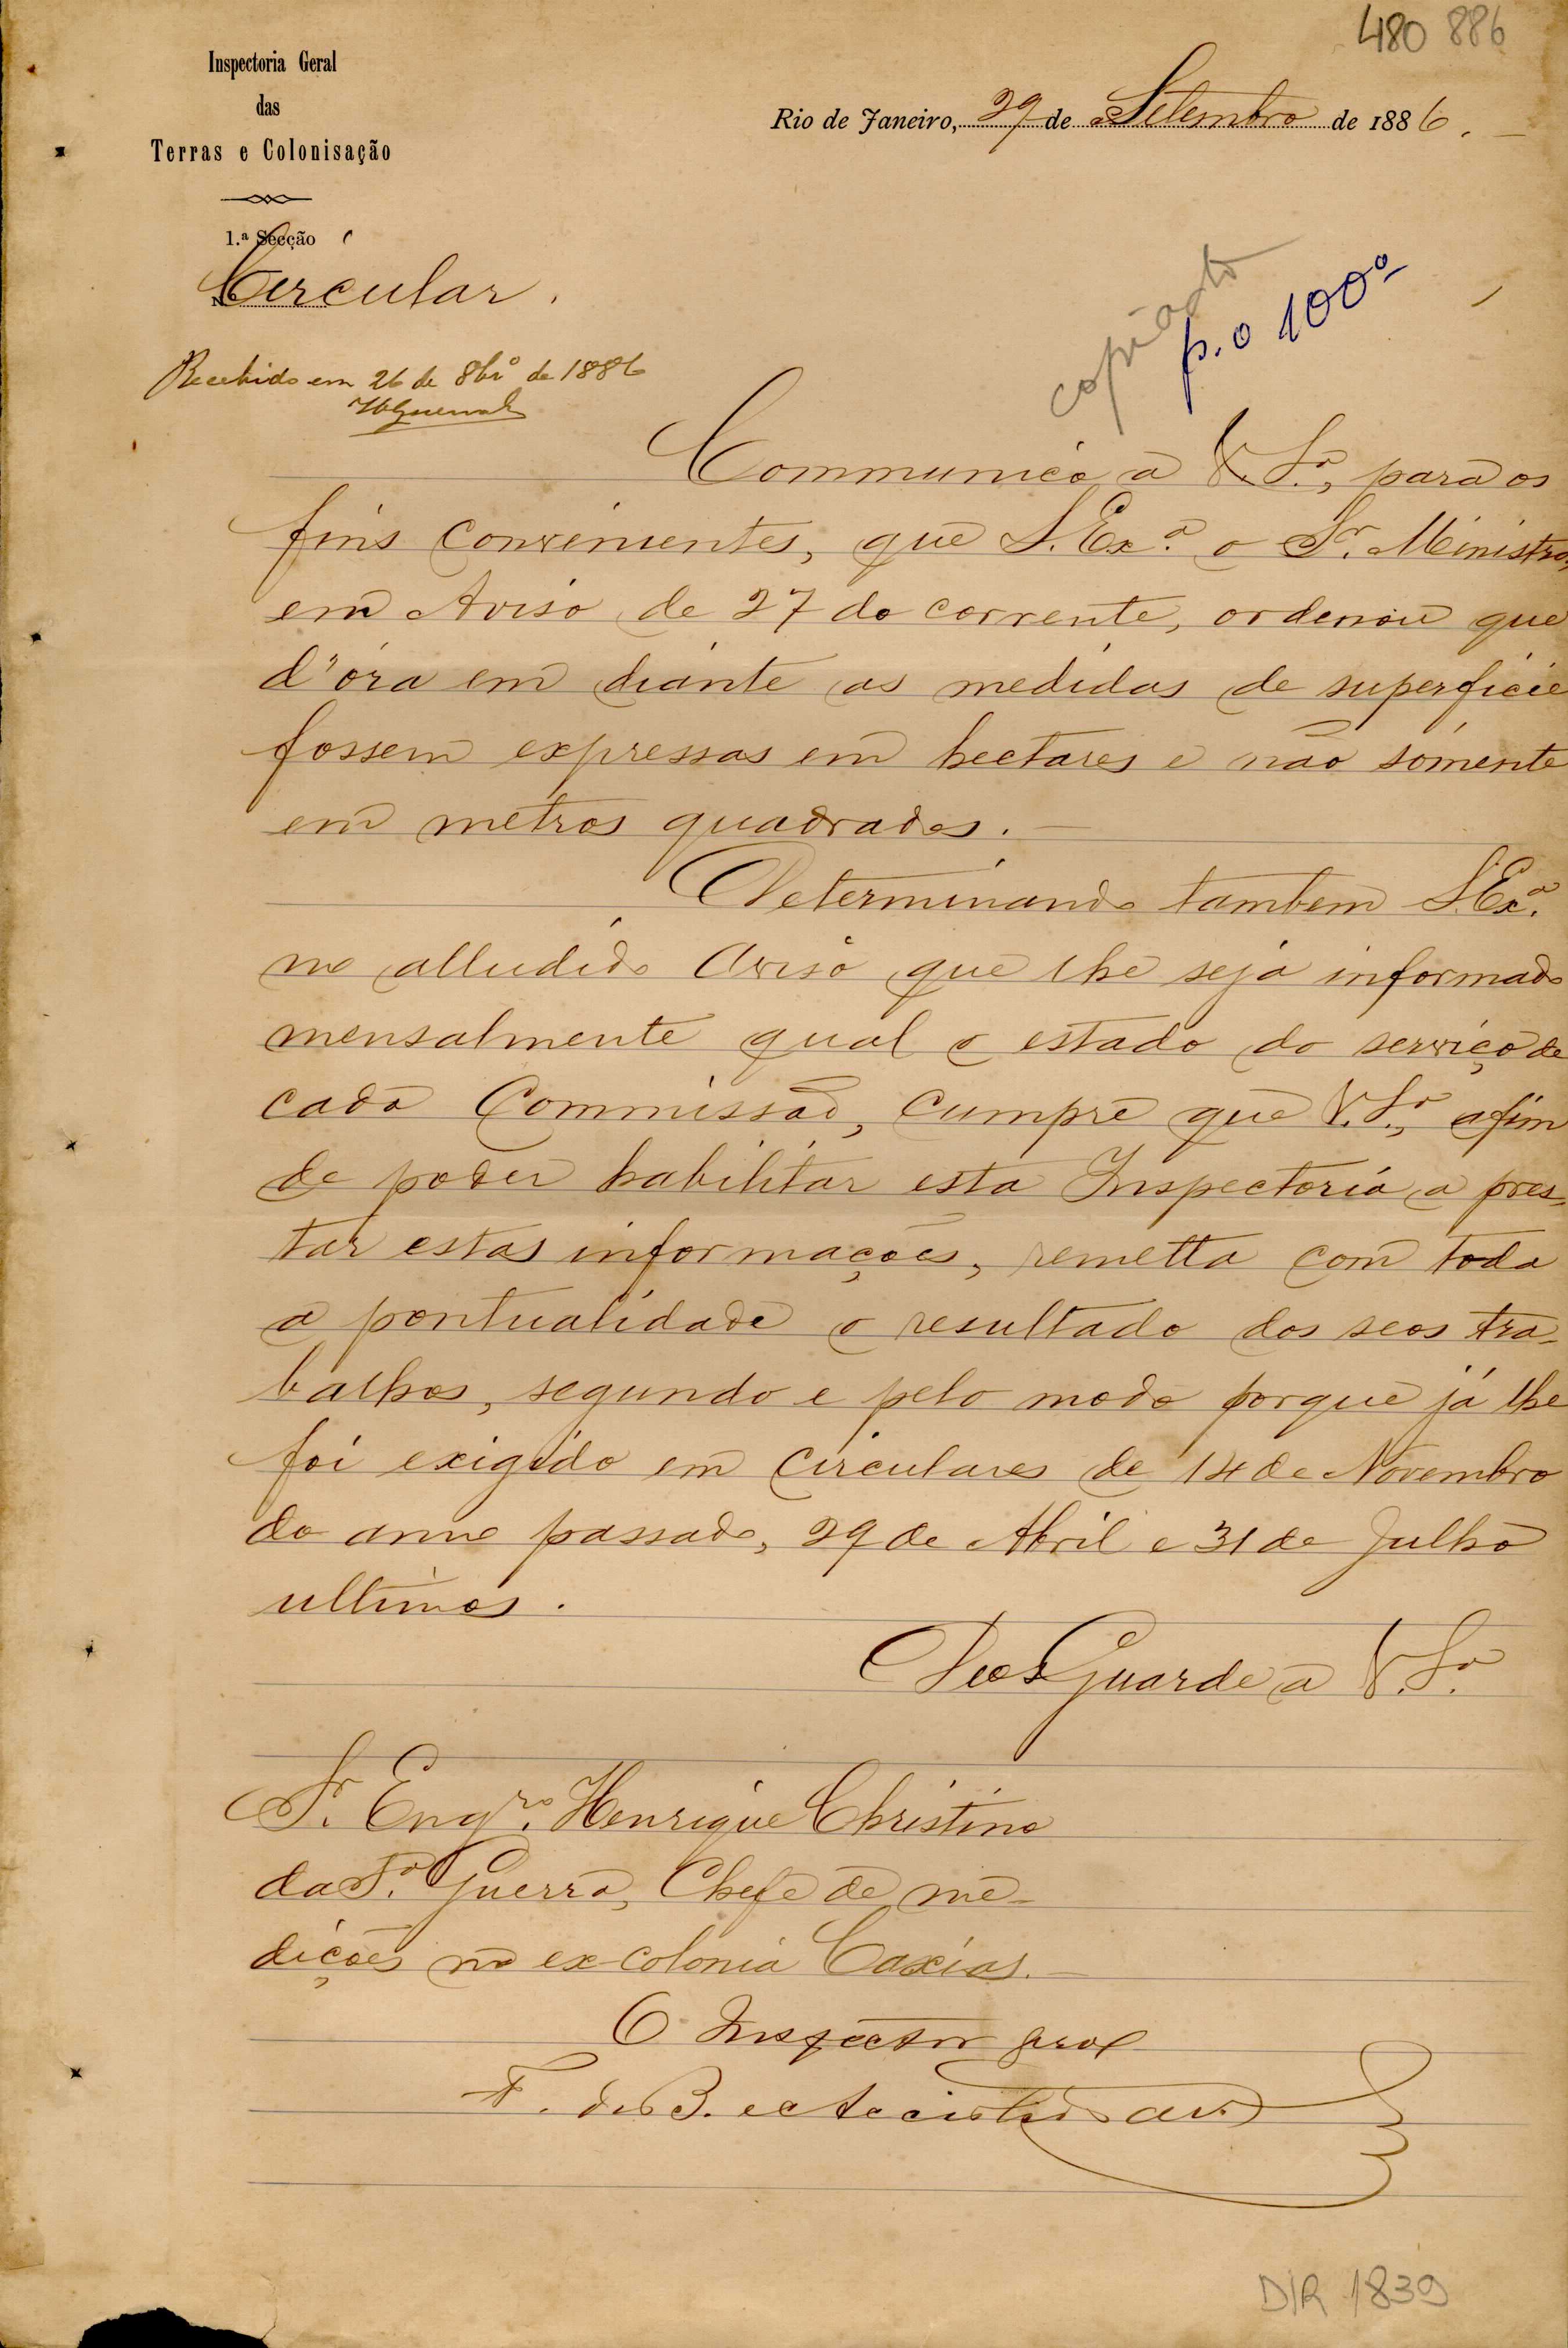 480 886
Inspectoria Geral
das
Terras e Colonisação
Rio de Janeiro, 29 de Setembro de 1886.
1.ª Secção
Circular.
copiado
p. o 100º
Recebido em 26 de 8brº de 1886
Communico a V. Sª., para os
fins convenientes, que S. Exª. o Sr. Ministro,
em Aviso de 27 do corrente, ordenou que
d'óra em diante as medidas de superficie
fossem expressas em hectares e não sómente
em metros quadrados. —
Determinando tambem S. Exª.
no alludido Aviso que lhe seja informado
mensalmente qual o estado do serviço de
cada Commissão, cumpre que V. Sª., afim
de poder habilitar esta Inspectoria a pres-
tar estas informações, remetta com toda
a pontualidade o resultado dos seos tra-
balhos, segundo e pelo modo porque já lhe
foi exigido em circulares de 14 de Novembro
do anno passado, 29 de Abril e 31 de Julho
ultimos.
Deos Guarde a V. Sª.
Sr. Engro. Henrique Christino
da Sª. Guerra, Chefe de me-
dições na ex-colonia Caxias. —
O Inspector geral
F. de B. e Accioli de
DIR 1839